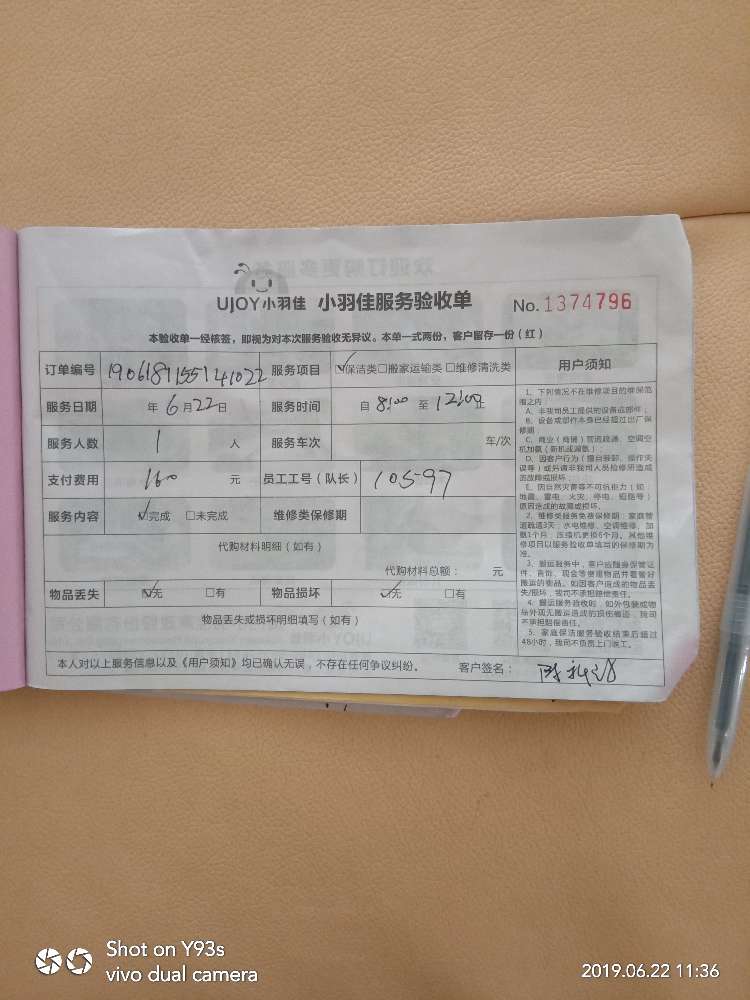 UJOY小羽佳 小羽佳服务验收单 No.1374796
本验收单一经核签，即视为对本次服务验收无异议。本单一式两份，客户留存一份（红）
订单编号 服务项目 ☑保洁类□搬家运输类□维修清洗类 用户须知
服务日期 年 6月22日 服务时间 自 8:00 至 12:00止
服务人数 1 人 服务车次 车/次
支付费用 160 元 员工工号（队长） 10597
服务内容 ☑完成 □未完成 维修类保修期
代购材料明细（如有）
代购材料总额： 元
物品丢失 ☑无 □有 物品损坏 ☑无 □有
物品丢失或损坏明细填写（如有）
本人对以上服务信息以及《用户须知》均已确认无误，不存在任何争议纠纷。 客户签名：
1、下列情况不在维修项目的维保范
围之内：
A、非我司员工提供的设备或部件；
B、设备或部件本身已经超过出厂保
修期；
C、商业（商铺）管道疏通、空调空
机加氨（新机或漏氨）；
D、因客户行为（擅自装卸、操作失
误等）或另请非我司人员检修所造成
的故障或损坏；
E、因自然灾害等不可抗拒力（如：
地震、雷电、火灾、停电、短路等）
原因造成的故障或损坏。
2、维修类服务免费保修期：家庭管
道疏通3天；水电维修、空调维修、加
氨1个月；压缩机更换6个月。其他维
修项目以服务验收单填写的保修期为
准。
3、搬运服务中，客户应随身保管证
件、首饰、现金等贵重物品并看管好
搬运的物品。如因客户造成的物品丢
失/损坏，我司不承担赔偿责任。
4、搬运服务验收时，如外包装或物
品外观无搬运造成的损伤痕迹，我司
不承担赔偿责任。
5、家庭保洁服务验收结束后超过
48小时，我司不负责上门返工。
Shot on Y93s
vivo dual camera
2019.06.22 11:36